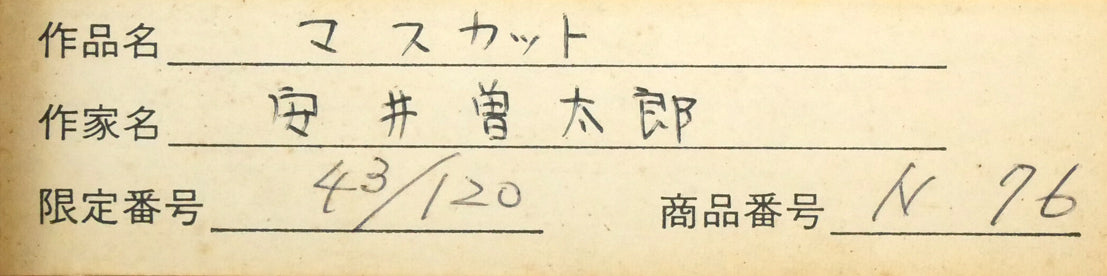 作品名 マスカット
作家名 安井曽太郎
限定番号 43/120 商品番号 N 76